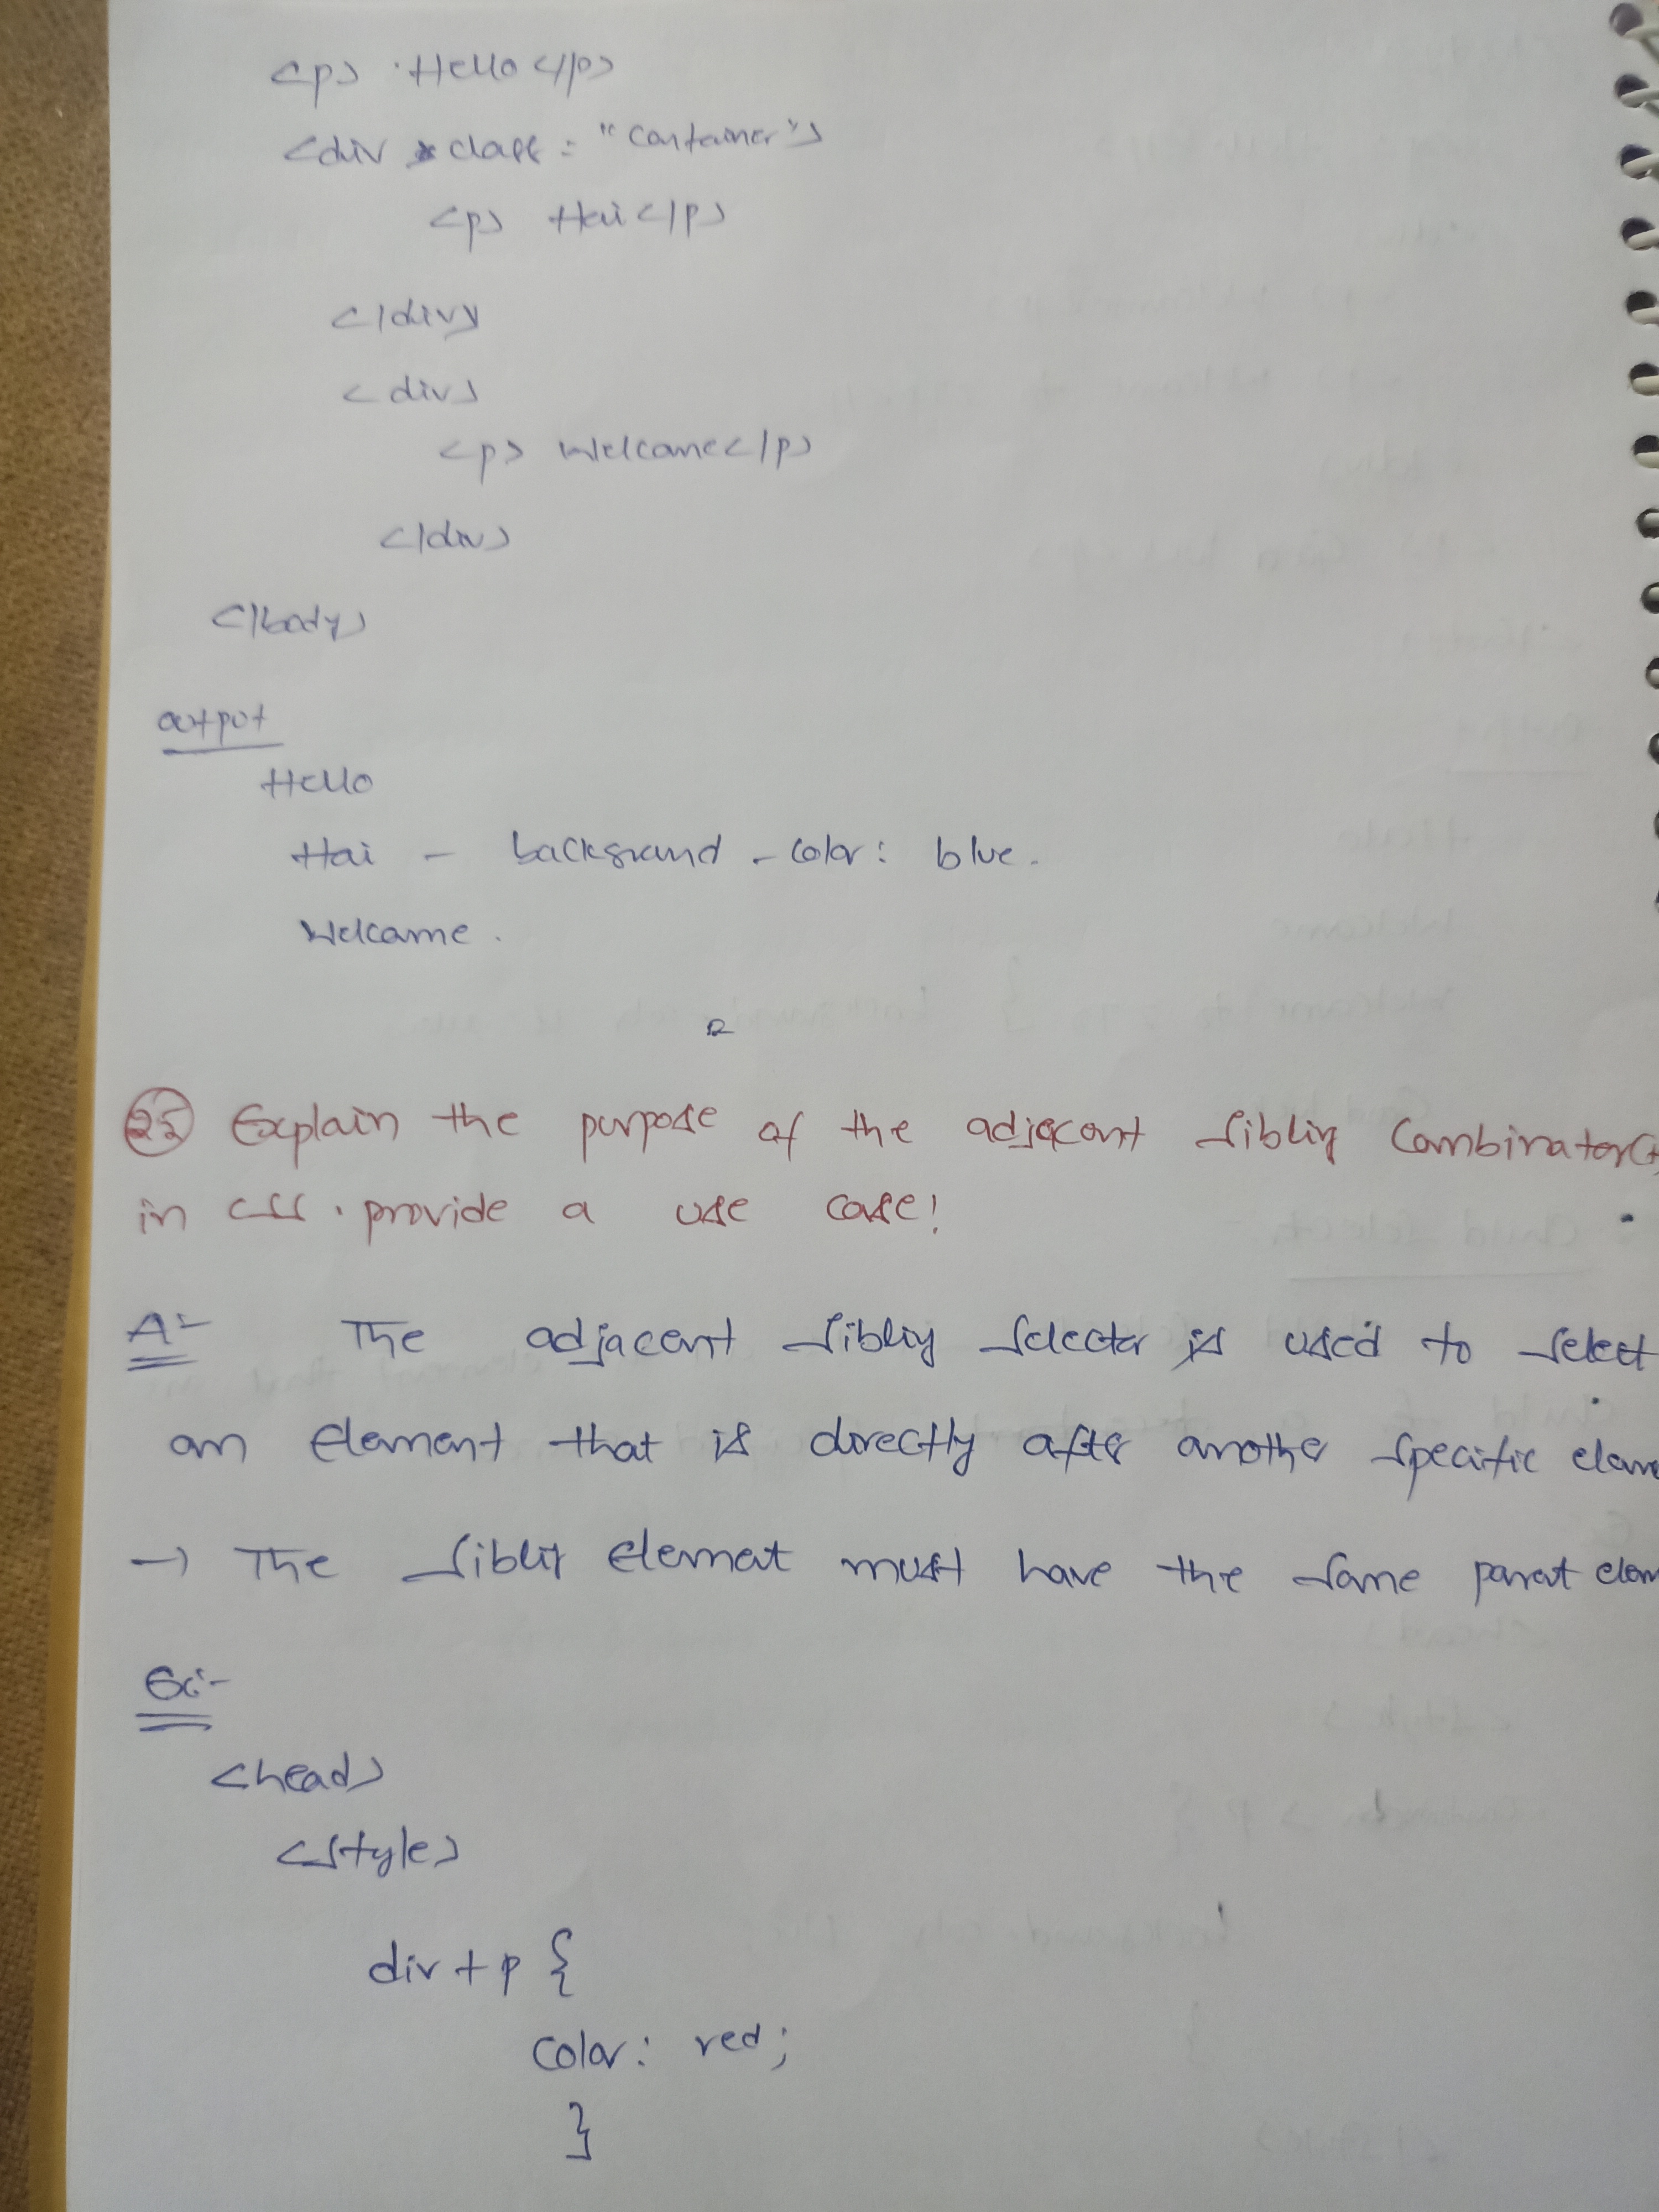 <p> Hello </p>
<div class = "container">
<p> Hai </p>
</div>
<div>
<p> Welcome </p>
</div>
</body>
output
Hello
Hai - background - color: blue.
Welcome.
25 Explain the purpose of the adjacent sibling Combinator(+
in CSS. provide a use case!
A:- The adjacent sibling selector is used to select
an element that is directly after another specific elem
→ The siblig element must have the same parent elem
Ex:-
<head>
<style>
div + p {
color: red;
}